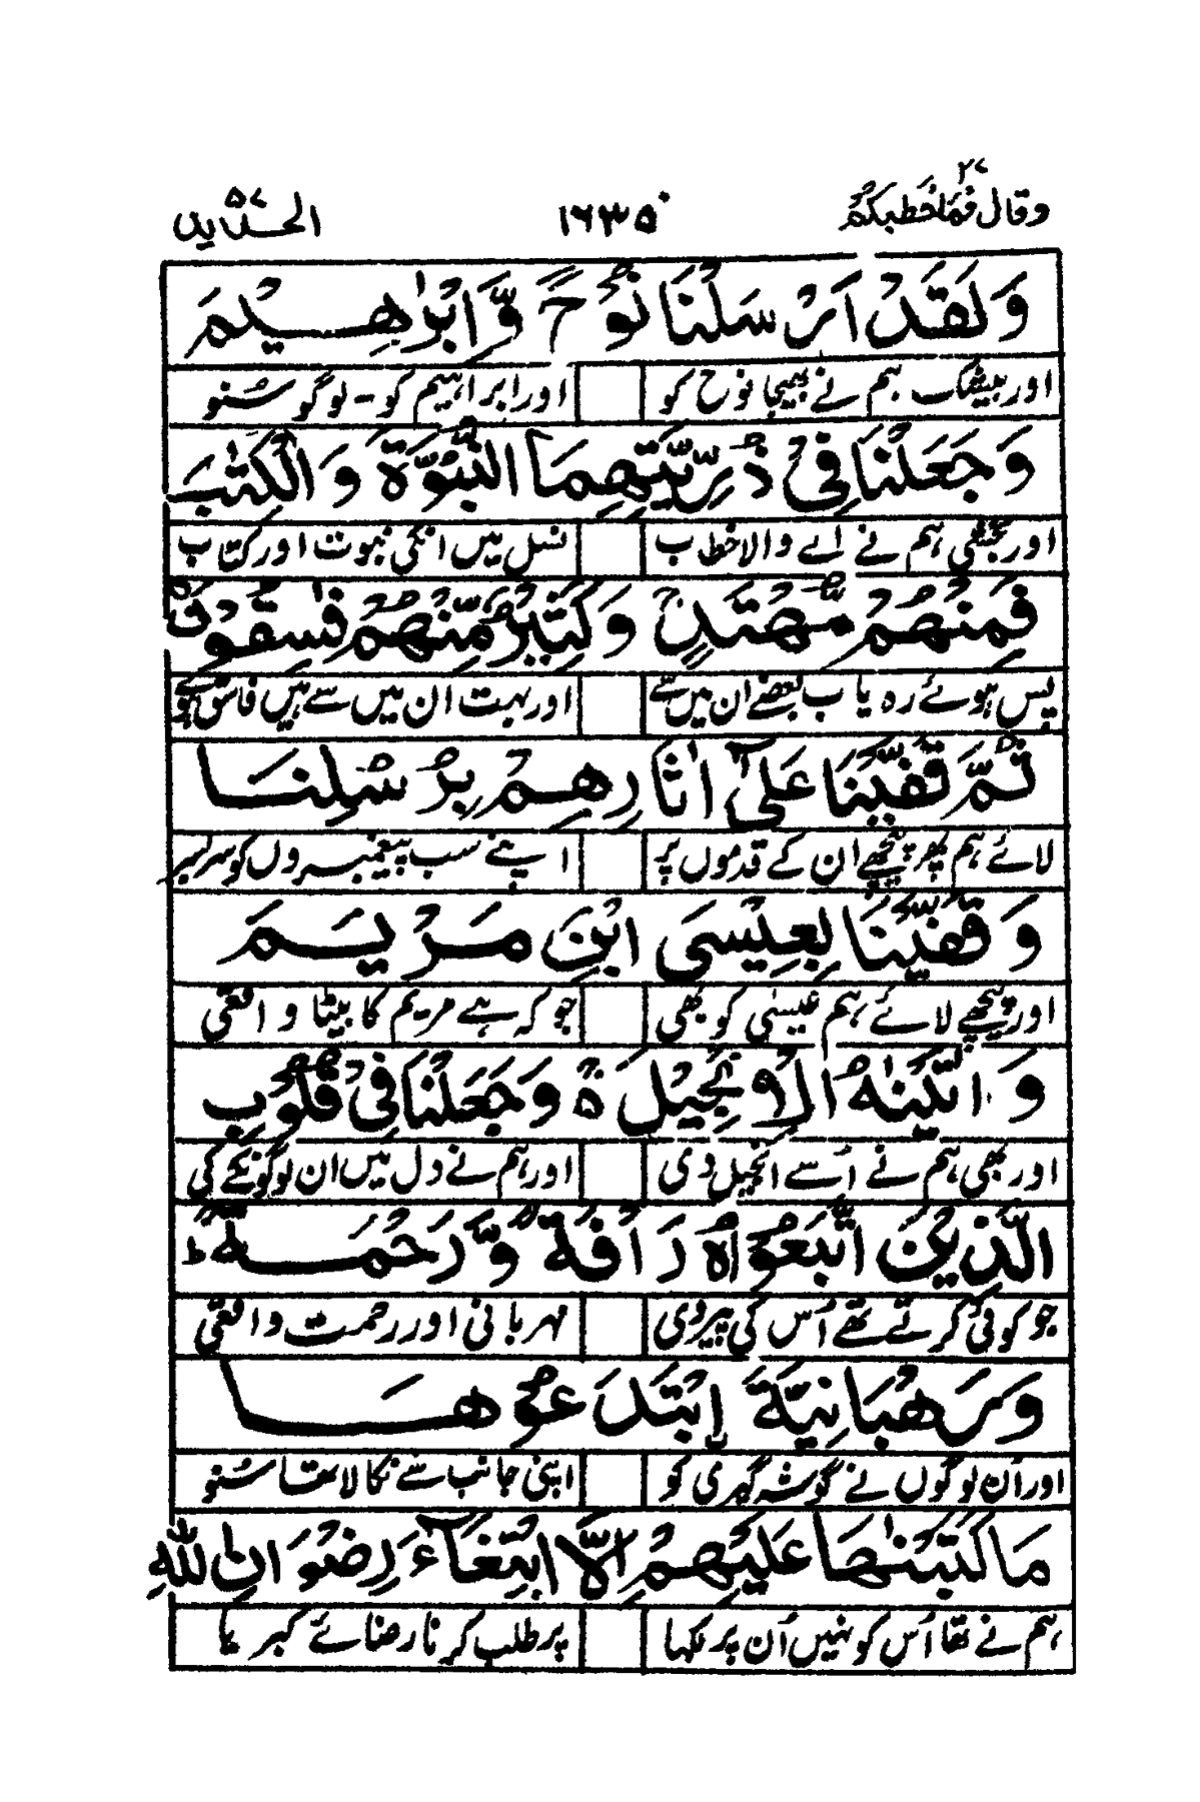 وقال فما خطبکم ۲۷ ۱۶۳۵ الحدید ۵۷
وَلَقَدْ اَرْسَلْنَا نُوْحًا وَّاِبْرٰهِیْمَ
اور بیشک ہم نے بھیجا نوح کو اور ابراہیم کو - لوگو سُنو
وَجَعَلْنَا فِیْ ذُرِّیَّتِهِمَا النُّبُوَّةَ وَالْكِتٰبَ
اور بخشی ہم نے اے والا خطاب نسل میں انکی نبوت اور کتاب
فَمِنْهُمْ مُّهْتَدٍ ۚ وَكَثِیْرٌ مِّنْهُمْ فٰسِقُوْنَ
پس ہوئے رہ یاب بعضے ان میں سے اور بہت ان میں سے ہیں فاسق ہوئے
ثُمَّ قَفَّیْنَا عَلٰۤی اٰثَارِهِمْ بِرُسُلِنَا
لائے ہم پھر پیچھے ان کے قدموں پر اپنے سب پیغمبروں کو سربسر
وَقَفَّیْنَا بِعِیْسَی ابْنِ مَرْیَمَ
اور پیچھے لائے ہم عیسیٰ کو بھی جو کہ ہے مریم کا بیٹا واقعی
وَاٰتَیْنٰهُ الْاِنْجِیْلَ ۙ۬ وَجَعَلْنَا فِیْ قُلُوْبِ
اور بھی ہم نے اُسے انجیل دی اور ہم نے دل میں ان لوگونکے کی
الَّذِیْنَ اتَّبَعُوْهُ رَاْفَةً وَّرَحْمَةً ؕ
جو کوئی کرتے تھے اُس کی پیروی مہربانی اور رحمت واقعی
وَرَهْبَانِیَّةَ ِ۟ابْتَدَعُوْهَا
اور اُن لوگوں نے گوشہ گیری کو اپنی جانب سے نکالا تھا سُنو
مَا كَتَبْنٰهَا عَلَیْهِمْ اِلَّا ابْتِغَآءَ رِضْوَانِ اللّٰهِ
ہم نے تھا اُس کو نہیں اُن پر لکھا پر طلب کرنا رضائے کبریا